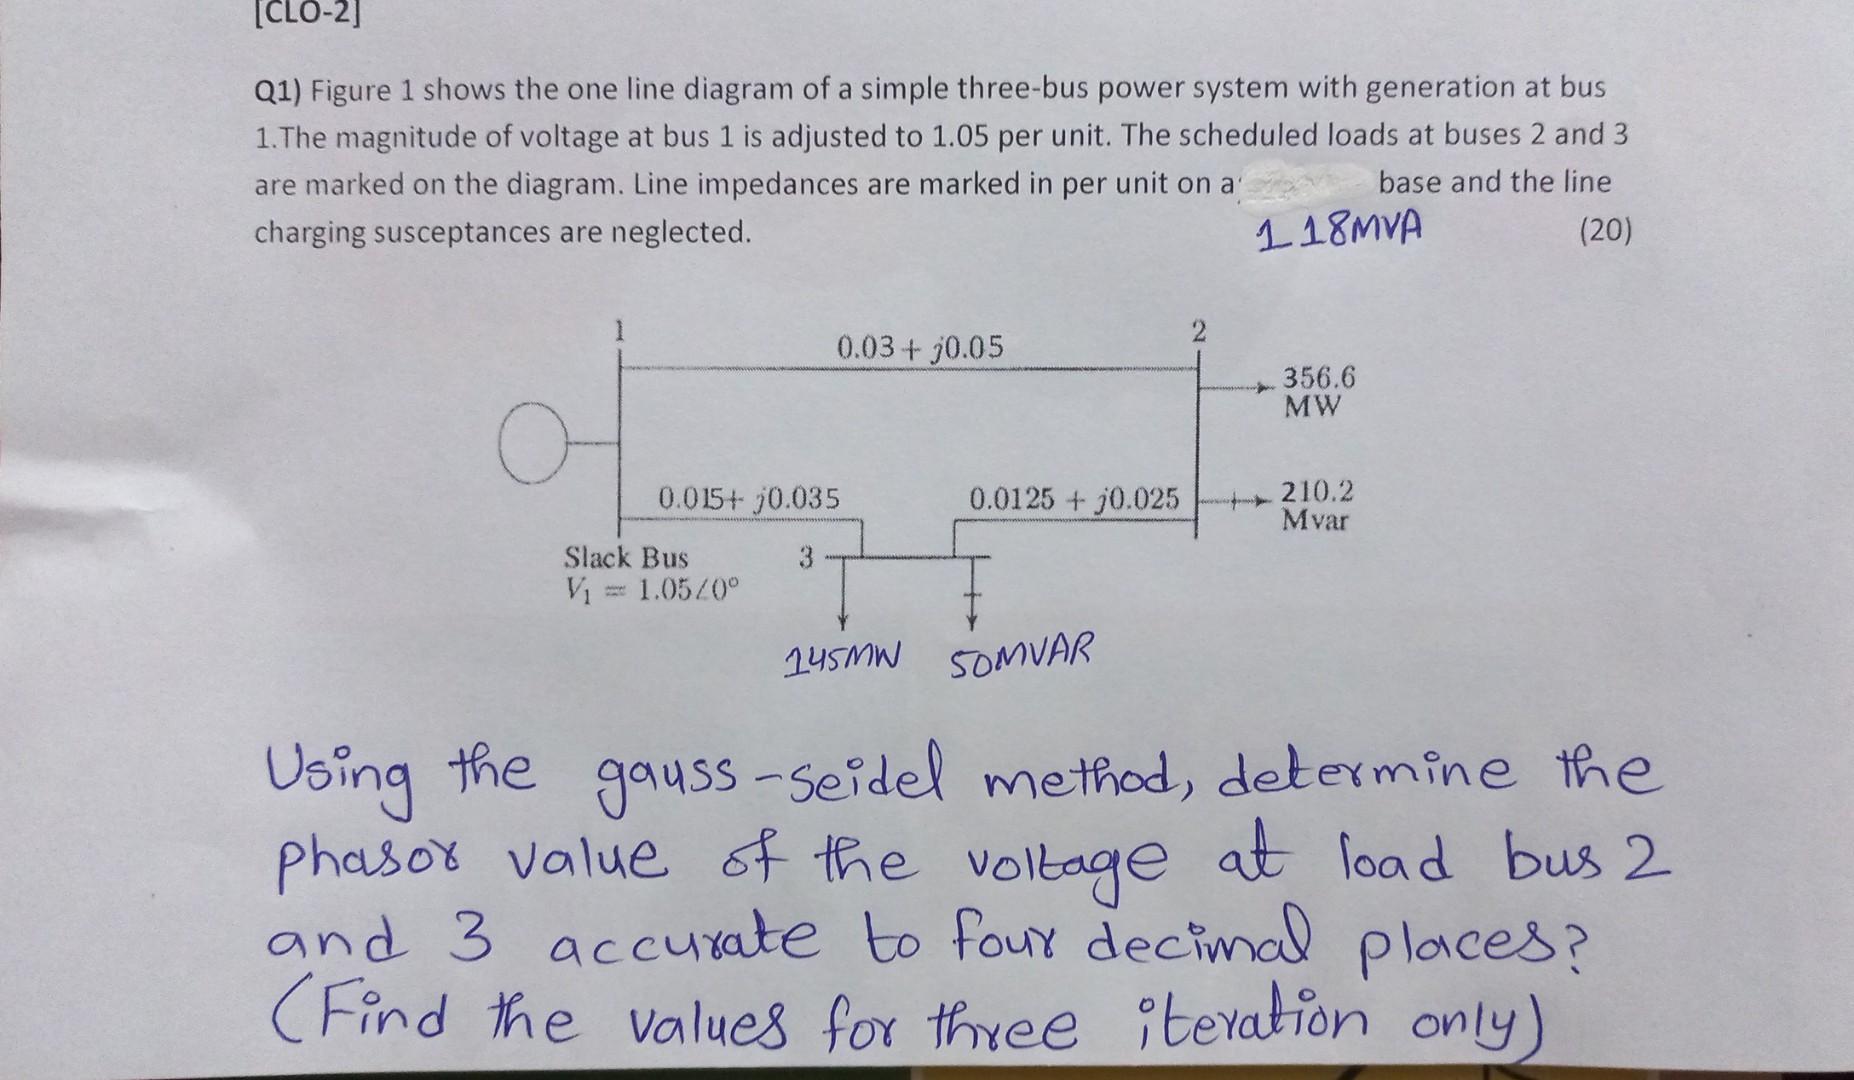 [CLO-2]
Q1) Figure 1 shows the one line diagram of a simple three-bus power system with generation at bus
1.The magnitude of voltage at bus 1 is adjusted to 1.05 per unit. The scheduled loads at buses 2 and 3
are marked on the diagram. Line impedances are marked in per unit on a base and the line
charging susceptances are neglected. 118MVA (20)
1 0.03 + j0.05 2
356.6
MW
0.015+ j0.035 0.0125 + j0.025 210.2
Mvar
Slack Bus 3
V₁ = 1.05∠0°
145MW 50MVAR
Using the gauss-seidel method, determine the
phasor value of the voltage at load bus 2
and 3 accurate to four decimal places?
(Find the values for three iteration only)